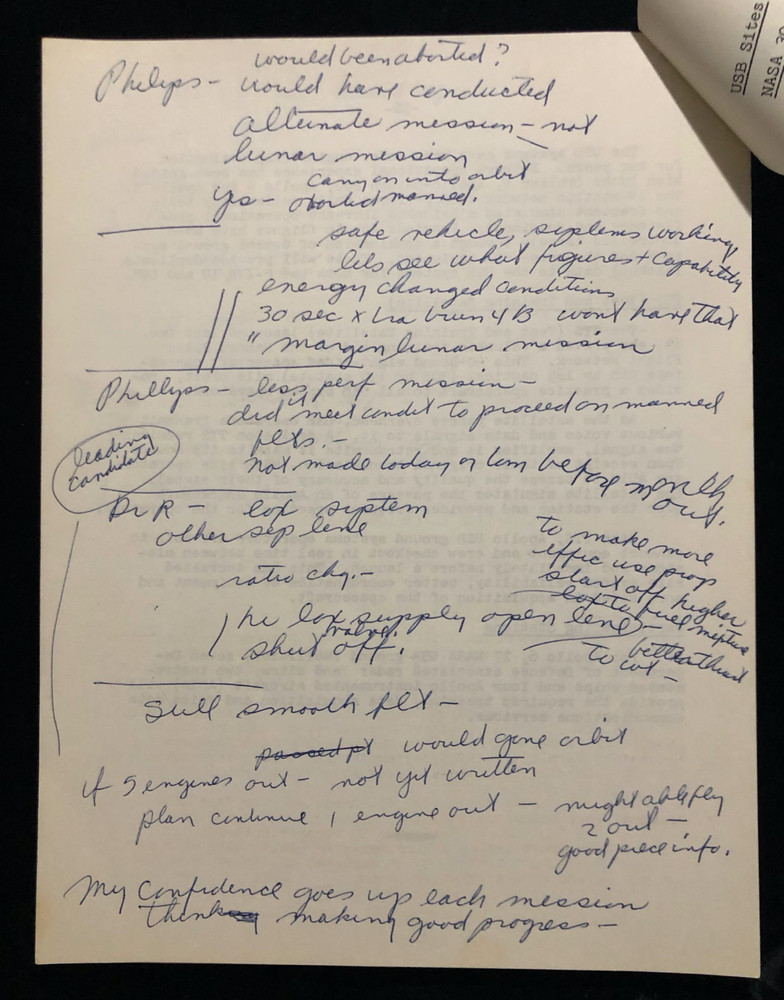 would been aborted?
Philips - would have conducted
alternate mession - not
lunar mession
carry on into orbit
yes - aborted manned.
safe vehicle, systems working,
lets see what figures + capability
energy changed conditions
30 sec x tra burn 4B wont have that
" margin lunar mession
Phillips - less perf mession -
did it meet condit to proceed on manned
flts. -
not made today or tom before month
out.
leading
candidate
Dr R - lox system
other sep line
ratio chg. -
to make more
effic use prop
start off higher
lox to fuel mixture
better thrust
to cot -
1 he lox supply open line -
valve
shut off.
Sull smooth flt -
passed pt would gone orbit
if 5 engines out - not yet written
plan continue 1 engine out - might able fly
2 out -
good piece info.
My confidence goes up each mession
think making good progress -
USB Sites
NASA